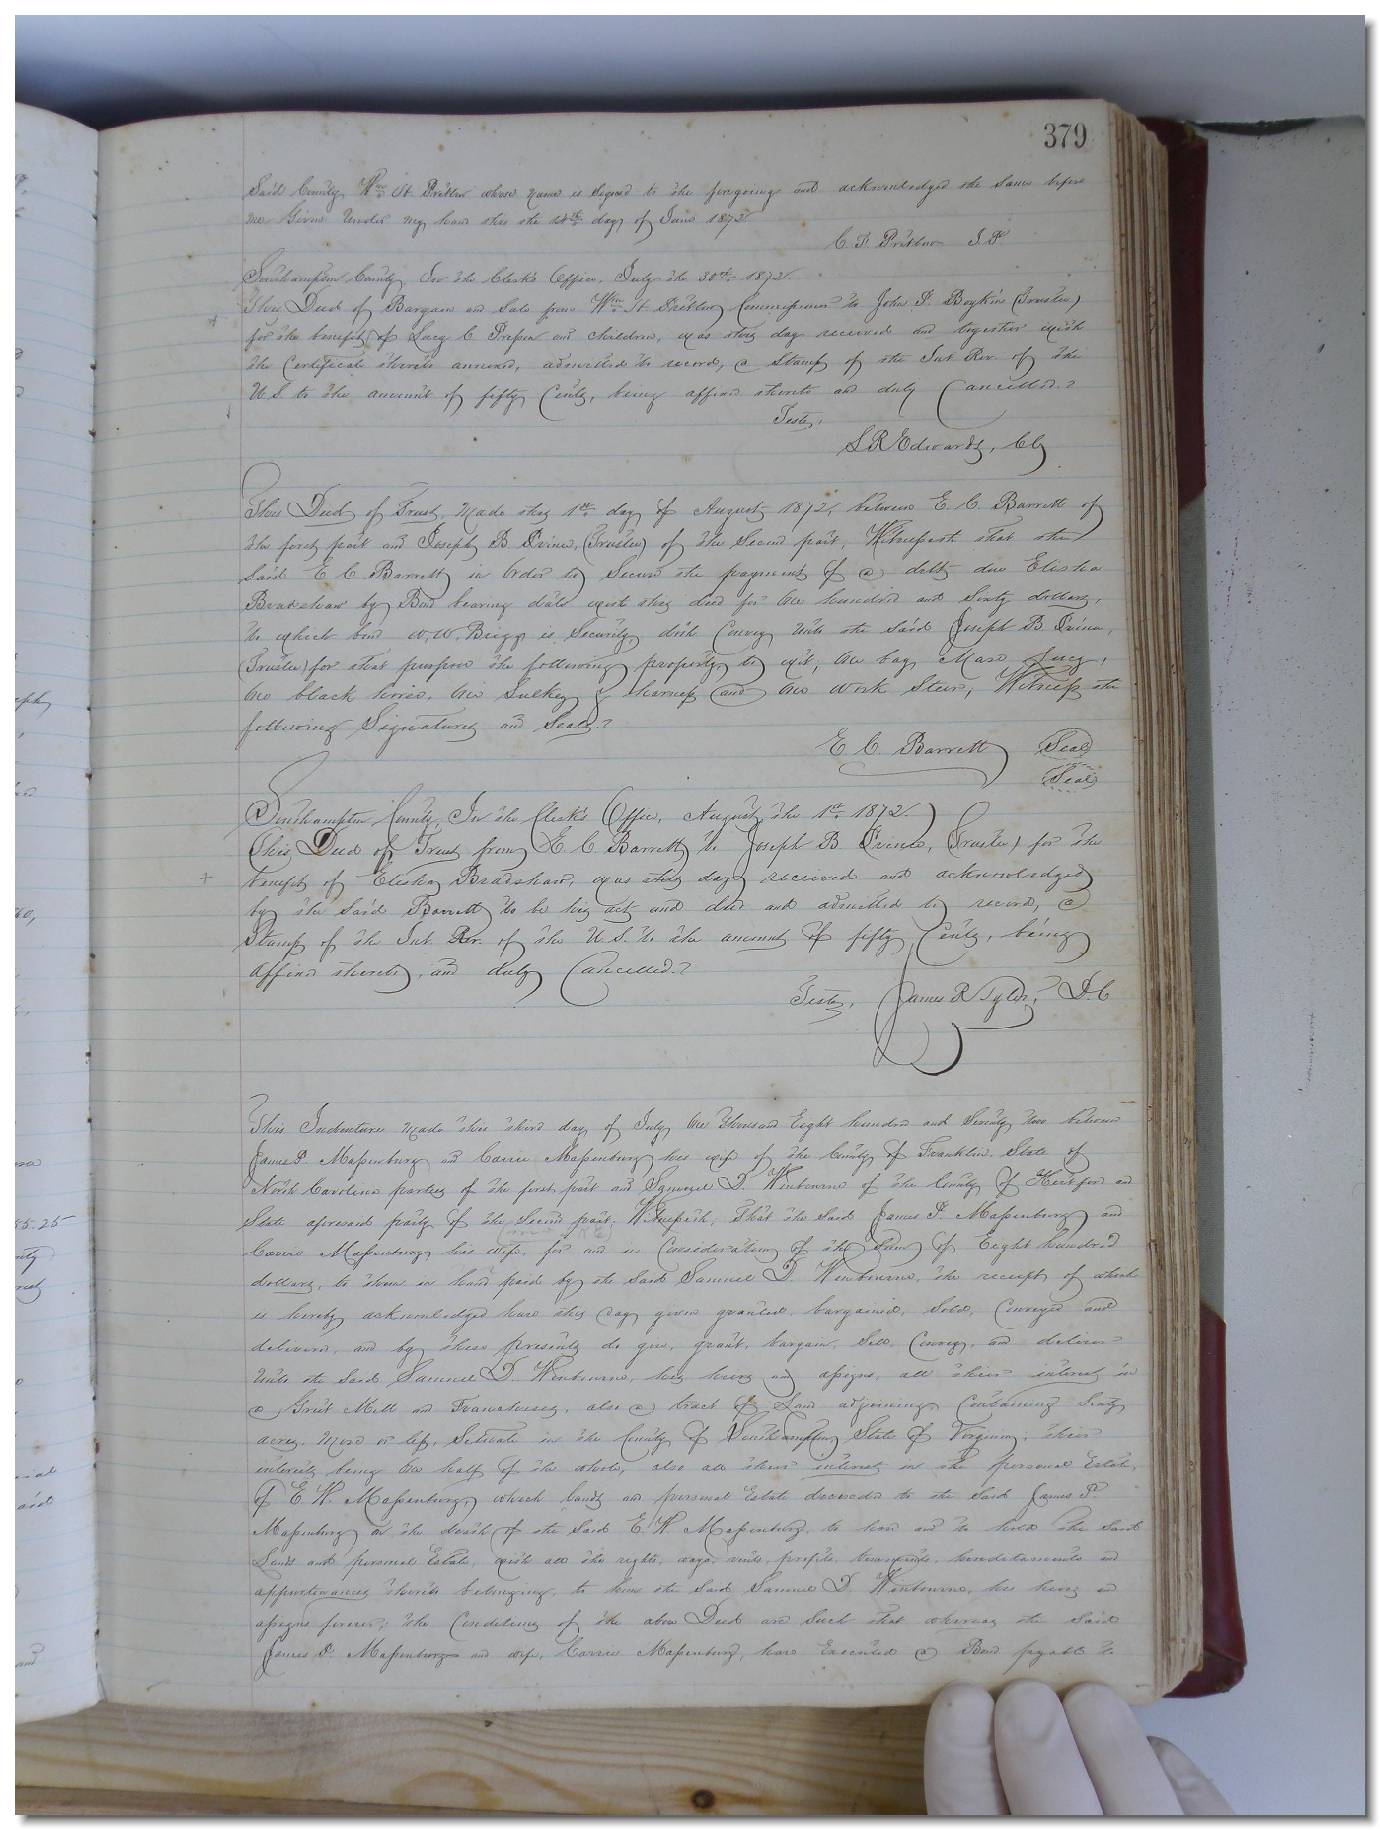 379
Said County, Wm H. Pretlow whose name is signed to the foregoing and acknowledged the same before
me Given under my hand this the day of June 1872
C. F. Pretlow J. P.
Southampton County, In the Clerk's Office, July the 30th 1872.
This Deed of Bargain and Sale from Wm H. Pretlow Commissioner to John P. Boykin (Trustee)
for the benefit of Lucy C. and children, was this day received and together with
the Certificate thereto annexed, admitted to record, a Stamp of the Int. Rev. of the
U.S. to the amount of fifty Cents, being affixed thereto and duly Cancelled.
Teste,
L R Edwards, Clk
This Deed of Trust, made this 1st day of August 1872, between E. C. Barrett of
the first part and Joseph B. Prince, (Trustee) of the Second part, Witnesseth that the
Said E C Barrett in order to Secure the payment of a debt due Elisha
Bradshaw by Bond bearing date with this deed for One hundred and Sixty dollars,
to which bond W. W. Briggs is Security, doth Convey unto the said Joseph B. Prince,
(Trustee) for that purpose the following property, to wit; One bay Mare Lucy,
One black horse, One Sulkey & harness and One work Steer, Witness the
following Signatures and Seals.
E. C. Barrett Seal
Seal
Southampton County, In the Clerk's Office, August the 1st 1872.
This Deed of Trust from E. C. Barrett to Joseph B. Prince, (Trustee) for the
benefit of Elisha Bradshaw, was this day received and acknowledged
by the Said Barrett to be his act and deed and admitted to record, a
Stamp of the Int. Rev. of the U.S. to the amount of fifty Cents, being
affixed thereto, and duly Cancelled.
Teste, James R Tyler, D.C
This Indenture made this third day of July One thousand Eight hundred and Seventy two between
James P. Massenburg and Carrie Massenburg his wife of the County of Franklin State of
North Carolina parties of the first part and Samuel D. Winbourne of the County of Hertford and
State aforesaid party of the Second part; Witnesseth; That the Said James P. Massenburg and
Carrie Massenburg his wife, for and in Consideration of the Sum of Eight hundred
dollars, to them in hand paid by the Said Samuel D. Winbourne, the receipt of which
is hereby acknowledged have this day given granted, bargained, Sold, Conveyed and
delivered, and by these presents do give, grant, bargain, Sell, Convey, and deliver
unto the Said Samuel D. Winbourne, his heirs and assigns, all their interest in
a Grist Mill and Franchises, also a tract of Land adjoining Containing Sixty
acres, more or less, Situate in the County of Southampton State of Virginia; their
interest being One half of the whole, also all their interest in the personal Estate,
of E. W. Massenburg, which lands and personal Estate descended to the Said James P.
Massenburg on the death of the Said E. W. Massenburg, to have and to hold the Said
Lands and personal Estate, with all the rights, ways, rents, profits, tenements, hereditaments and
appurtenances thereto belonging, to him the Said Samuel D. Winbourne, his heirs and
assigns forever; the Conditions of the above Deed are Such that whereas the Said
James P. Massenburg and wife, Carrie Massenburg, have Executed a Bond payable to